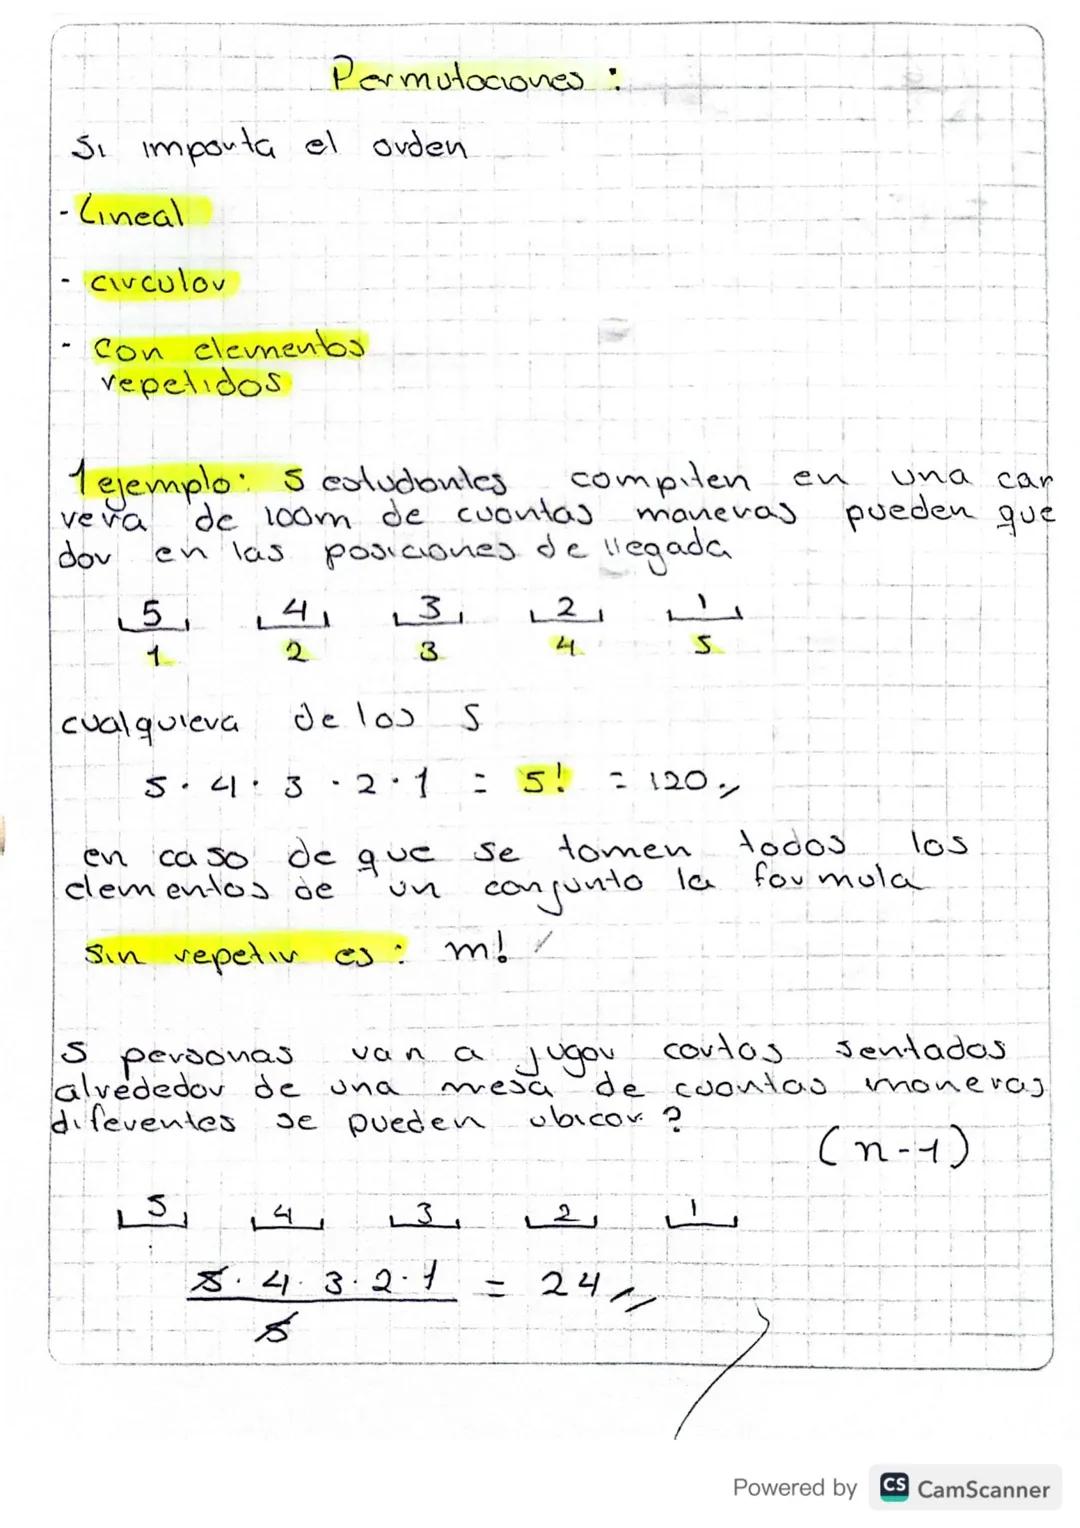 Permutaciones :
Si importa el orden
- Lineal
- circular
- Con elementos
repetidos
1 ejemplo: 5 estudiantes compiten en una car
rera de 100m de cuantas maneras pueden que
dar en las posiciones de llegada
5 4 3 2 1
1 2 3 4 5
cualquiera de los 5
5 · 4 · 3 · 2 · 1 = 5! = 120
en caso de que se tomen todos los
elementos de un conjunto la formula
sin repetir es : m!
5 personas van a jugar cartas sentados
alrededor de una mesa de cuantas maneras
diferentes se pueden ubicar ?
(n-1)
5 4 3 2 1
5 · 4 · 3 · 2 · 1 = 24
5
Powered by CS CamScanner